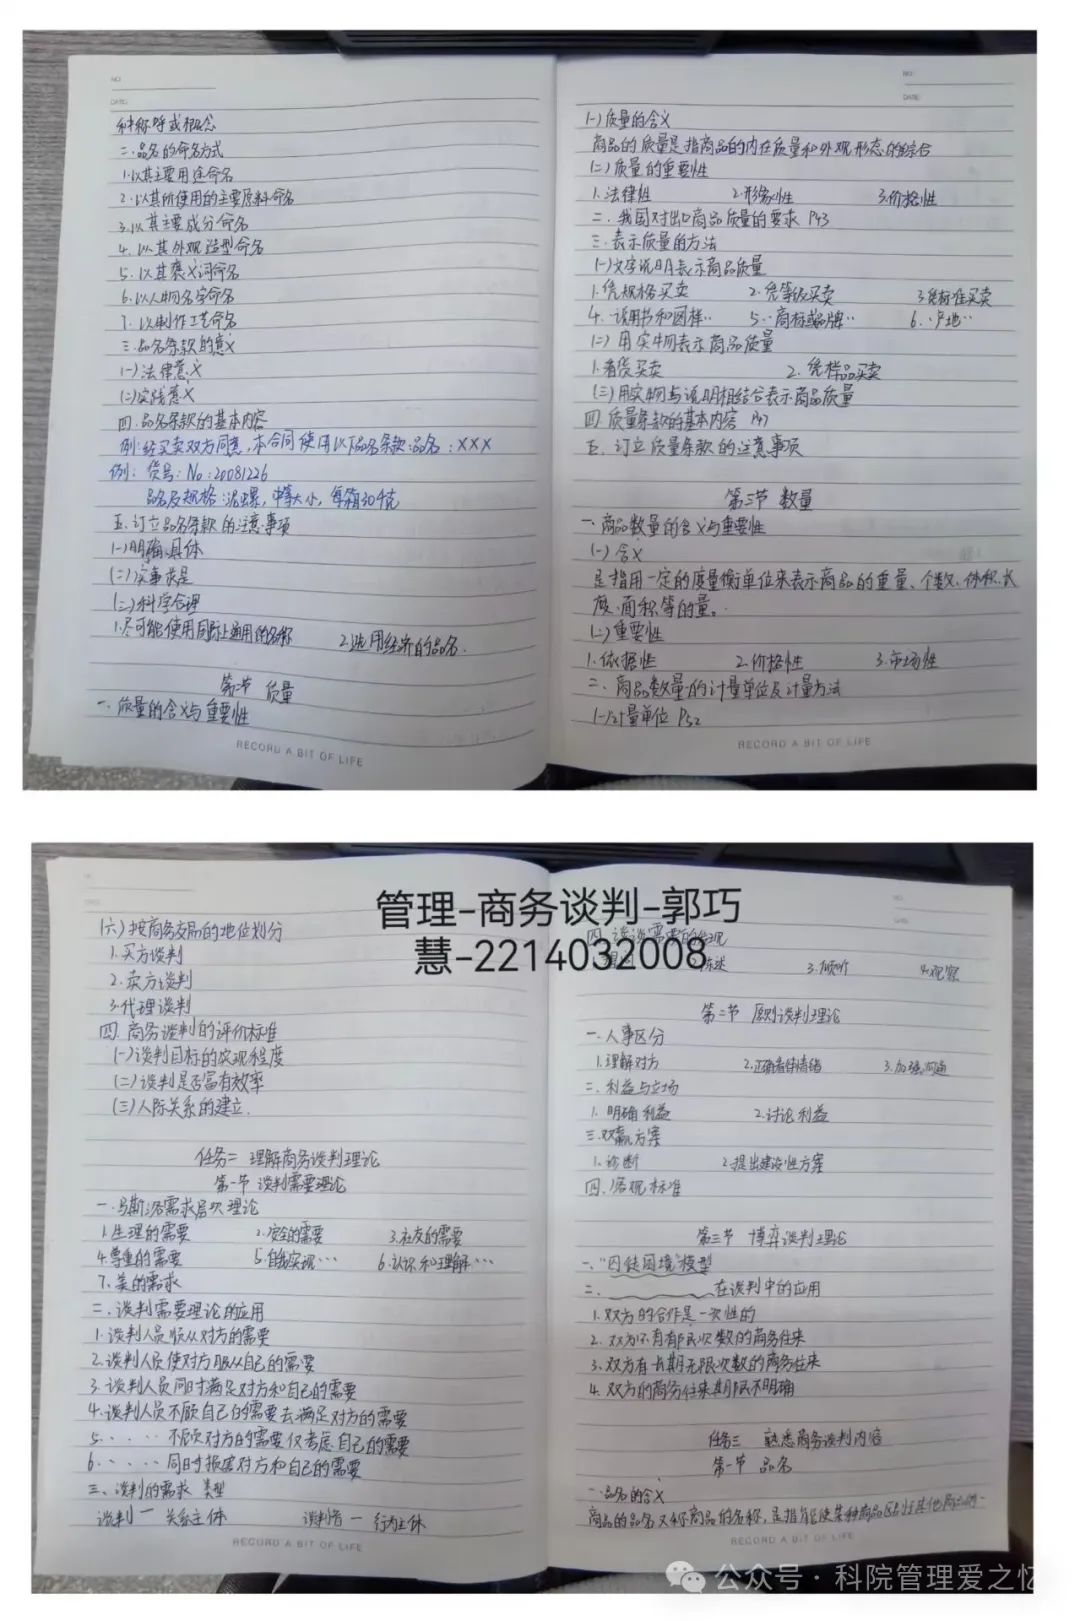 NO:
DATE:
种称呼或概念
二.品名的命名方式
1.以其主要用途命名
2.以其所使用的主要原料命名
3.以其主要成分命名
4.以其外观造型命名
5.以其褒义词命名
6.以人物名字命名
7.以制作工艺命名
三.品名条款的意义
(一)法律意义
(二)实践意义
四.品名条款的基本内容
例:经买卖双方同意,本合同使用以下品名条款:品名:×××
例:货号:No:20081226
品名及规格:泥螺,中等大小,每箱30千克
五.订立品名条款的注意事项
(一)明确、具体
(二)实事求是
(三)科学合理
1.尽可能使用国际上通用的名称 2.选用经济的品名.
第二节 质量
一.质量的含义与重要性
RECORD A BIT OF LIFE
NO:
DATE:
(一)质量的含义
商品的质量是指商品的内在质量和外观形态的综合
(二)质量的重要性
1.法律性 2.形象性 3.价格性
二.我国对出口商品质量的要求 P43
三.表示质量的方法
(一)文字说明表示商品质量
1.凭规格买卖 2.凭等级买卖 3.凭标准买卖
4.说明书和图样·· 5.··商标或品牌·· 6.··产地··
(二)用实物表示商品质量
1.看货买卖 2.凭样品买卖
(三)用实物与说明相结合表示商品质量
四.质量条款的基本内容 P47
五.订立质量条款的注意事项
第三节 数量
一.商品数量的含义与重要性
(一)含义
是指用一定的度量衡单位来表示商品的重量、个数、体积、长
度、面积等的量。
(二)重要性
1.依据性 2.价格性 3.市场性
二.商品数量的计量单位及计量方法
(一)计量单位 P52
RECORD A BIT OF LIFE
管理-商务谈判-郭巧
慧-2214032008
(六)按商务交易的地位划分
1.买方谈判
2.卖方谈判
3.代理谈判
四.商务谈判的评价标准
(一)谈判目标的实现程度
(二)谈判是否富有效率
(三)人际关系的建立.
任务二 理解商务谈判理论
第一节 谈判需要理论
一.马斯洛需求层次理论
1.生理的需要 2.安全的需要 3.社友的需要
4.尊重的需要 5.自我实现··· 6.认识和理解···
7.美的需求
二.谈判需要理论的应用
1.谈判人员顺从对方的需要
2.谈判人员使对方服从自己的需要
3.谈判人员同时满足对方和自己的需要
4.谈判人员不顾自己的需要去满足对方的需要
5.····不顾对方的需要仅考虑自己的需要
6.·····同时损害对方和自己的需要
三.谈判的需求类型
谈判一关系主体 谈判者一行为主体
RECORD A BIT OF LIFE
NO:
DATE:
四.谈判需要的发现
1.提问 2.陈述 3.倾听 4.观察
第二节 原则谈判理论
一.人事区分
1.理解对方 2.正确看待情绪 3.加强沟通
二.利益与立场
1.明确利益 2.讨论利益
三.双赢方案
1.诊断 2.提出建设性方案
四.客观标准
第三节 博弈谈判理论
一."囚徒困境"模型
二.在谈判中的应用
1.双方的合作是一次性的
2.双方还有有限次数的商务往来
3.双方有长期无限次数的商务往来
4.双方的商务往来期限不明确
任务三 熟悉商务谈判内容
第一节 品名
一.品名的含义
商品的品名又称商品的名称,是指能使某种商品区别于其他商品的一
RECORD A BIT OF LIFE
公众号·科院管理爱之忆